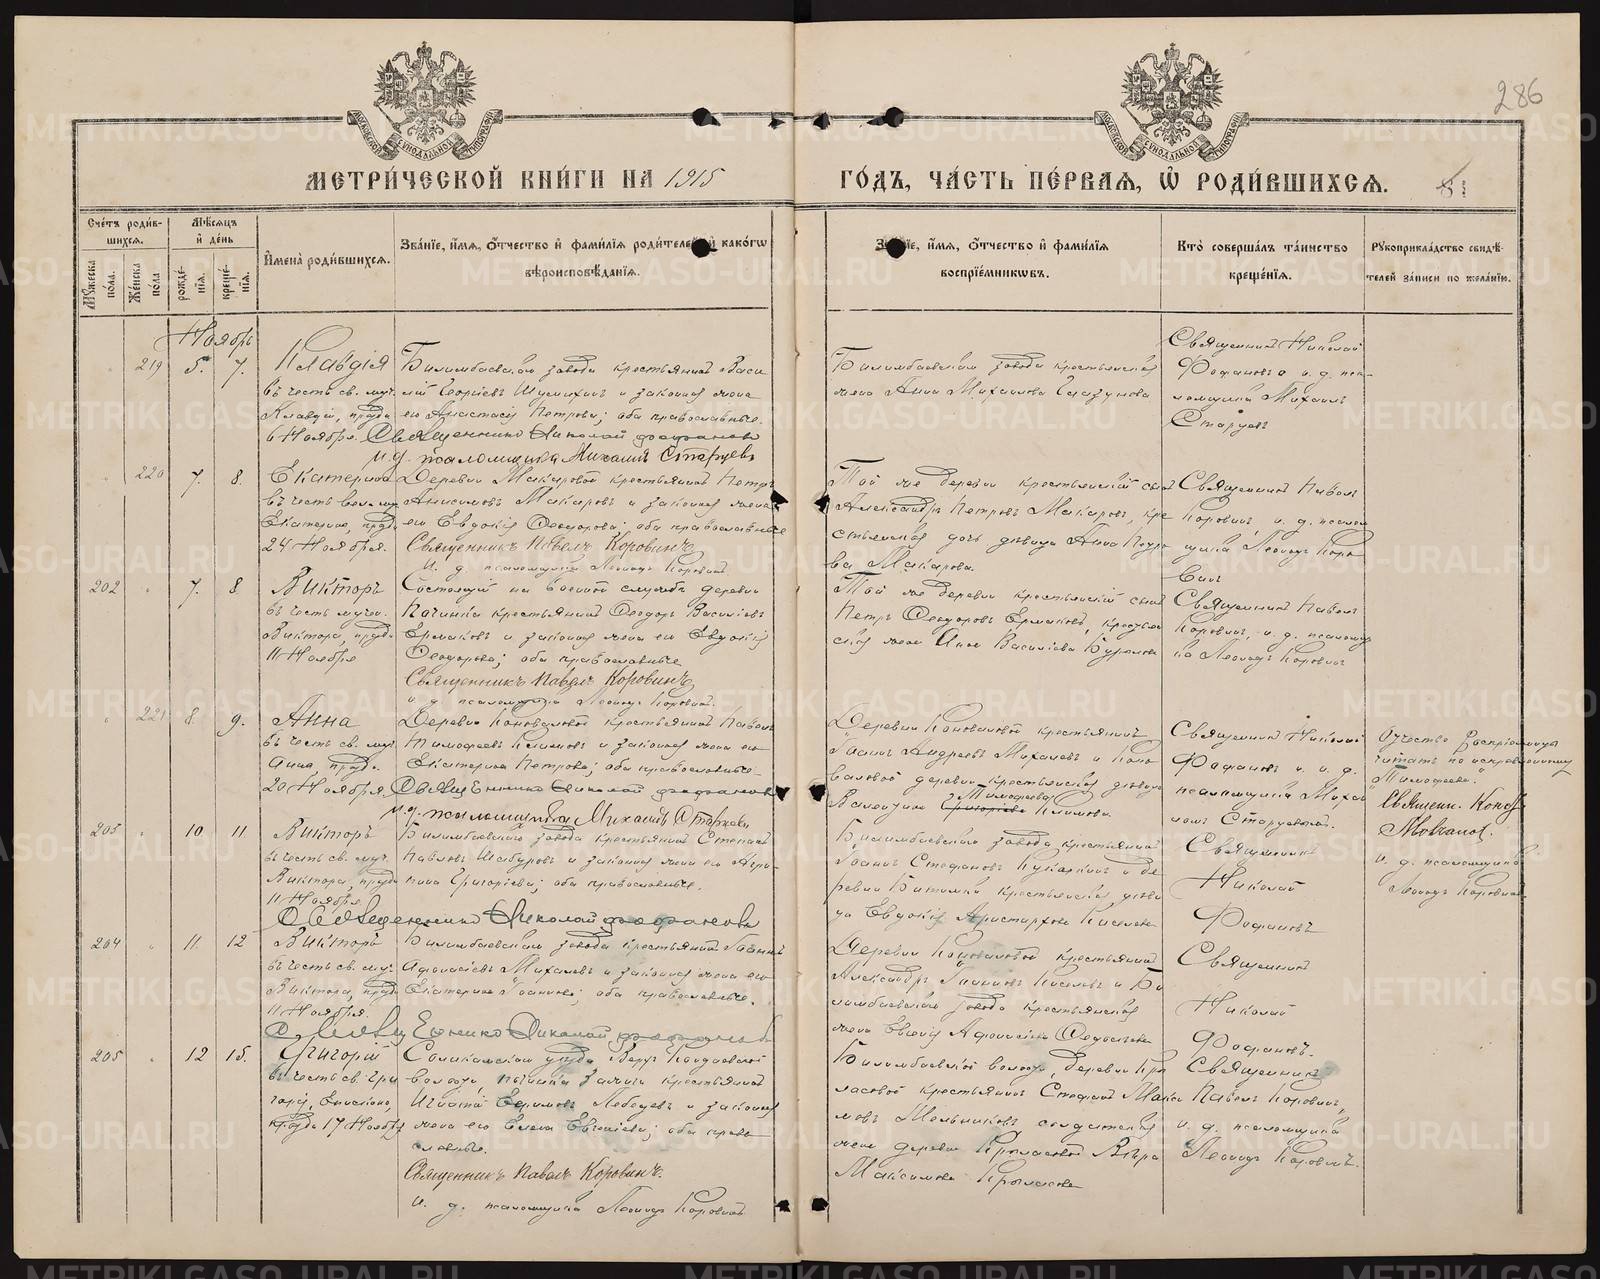 286
МЕТРИ́ЧЕСКОЙ КНИ́ГИ НА 1915
ГО́ДЪ, ЧА́СТЬ ПЕ́РВАЯ, Ѡ РОДИ́ВШИХСѦ.
Сче́тъ роди́в-
шихсѧ.
Мѣ́сѧцъ
и҆ де́нь
И҆мена̀ роди́вшихсѧ.
Зва́нїе, и҆́мѧ, ѻ҆́тчество и҆ фами́лїѧ роди́телей и҆ како́гѡ
вѣроисповѣ́данїѧ.
и҆́мѧ, ѻ҆́тчество и҆ фами́лїѧ
воспрїе́мникѡвъ.
Кто̀ соверша́лъ та́инство
креще́нїѧ.
Рꙋкоприкла́дство свидѣ́-
телей за́писи по жела́нїю.
Мꙋ́жеска
по́ла.
Же́нска
по́ла
рожде́-
нїѧ.
креще́-
нїѧ.
Ноябрь
219 5. 7.
Клавдія
въ честь св. муч.
Клавдіи, празд.
6 Ноября.
Билимбаевскаго завода крестьянинъ Васи
лій Георгіевъ и законная жена
его Анастасія Петрова; оба православные.
Священникъ Николай Фофановъ
и.д. псаломщика Михаилъ Старцевъ
Билимбаевскаго завода крестьянская
жена Анна Михаилова Глазунова
Священникъ Николай
Фофановъ и и. д. пса-
ломщика Михаилъ
Старцевъ
220 7. 8.
Екатерина
въ честь вел. муч.
Екатерины, празд.
24 Ноября.
Деревни Макаровой крестьянинъ Петръ
Анисимовъ Макаровъ и законная жена
его Евдокія Ѳеодорова; оба православные
Священникъ Павелъ Коровинъ
и. д. псаломщика Леонидъ Коровинъ
Той же деревни крестьянскій сынъ
Александръ Петровъ Макаровъ, кре
стьянская дочь девица Анна Петро
ва Макарова.
Священникъ Павелъ
Коровинъ, и. д. псалом
щика Леонидъ Коро
винъ
202 7. 8.
Викторъ
въ честь мучен.
Виктора, празд.
11 Ноября
Состоящій на военной службе деревни
Починка крестьянинъ Ѳеодоръ Василіевъ
Ермаковъ и законная жена его Евдокія
Ѳеодорова; оба православные
Священникъ Павелъ Коровинъ
и д псаломщика Леонидъ Коровинъ.
Той же деревни крестьянскій сынъ
Петръ Ѳеодоровъ Ермаковъ, крестьян
ская жена Анна Василіева
Священникъ Павелъ
Коровинъ, и. д. псаломщи
ка Леонидъ Коровинъ
221 8. 9.
Анна
въ честь св. муч.
Анны, празд.
20 Ноября.
Деревни Коноваловой крестьянинъ Павелъ
Тимофеевъ Климовъ и законная жена его
Екатерина Петрова; оба православные.
Священникъ Николай Фофановъ
и.д. псаломщика Михаилъ Старцевъ
Деревни Коноваловой крестьянинъ
Іоаннъ Андреевъ Михалевъ и Коно
валовой деревни крестьянская девица
Тимофеева
Валентина Григоріева Климова.
Священникъ Николай
Фофановъ и и. д.
псаломщика Михаи
ломъ Старцевымъ.
Отчество Воспріемницы
читать по исправленному
"Тимофеева".
Священн. Конст.
и. д. псаломщика
Леонидъ Коровинъ
203 10 11
Викторъ
въ честь св. муч.
Виктора, празд
11 Ноября.
Билимбаевскаго завода крестьянинъ Степанъ
Павловъ Шабуровъ и законная жена его Агрип-
пина Григоріева; оба православные.
Священникъ Николай Фофановъ
Билимбаевскаго завода крестьянинъ
Іоаннъ Стефановъ и де
ревни Битимки крестьянская деви
ца Евдокія Аристархова Киселева
Священникъ
Николай
Фофановъ
204 11. 12
Викторъ
въ честь св. муч.
Виктора, празд
11 Ноября.
Билимбаевскаго завода крестьянинъ Іоаннъ
Афонасіевъ Михалевъ и законная жена его
Екатерина Іоаннова; оба православные.
Священникъ Николай Фофановъ
Деревни Коноваловой крестьянинъ
Александръ Іоанновъ и Би
лимбаевскаго завода крестьянская
жена Евгенія Афонасіева Федосеева
Священникъ
Николай
Фофановъ.
205 12 15.
Григорій
въ честь св. Гри
горія, Епископа,
празд 17 Ноября
Соликамскаго уезда Верхъ Кондасской
волости, починка крестьянинъ
Игнатій Ефимовъ Лебедевъ и законная
жена его Елена Евгеніева; оба право
славные.
Священникъ Павелъ Коровинъ.
и. д. псаломщика Леонидъ Коровинъ
Билимбаевской волости, деревни Кры
ласовой крестьянинъ Стефанъ Макси
мовъ Мельниковъ солдатская
жена деревни Крыласовой Вера
Максимова Крыласова
Священникъ
Павелъ Коровинъ,
и. д. псаломщика
Леонидъ Коровинъ.
METRIKI.GASO-URAL.RU